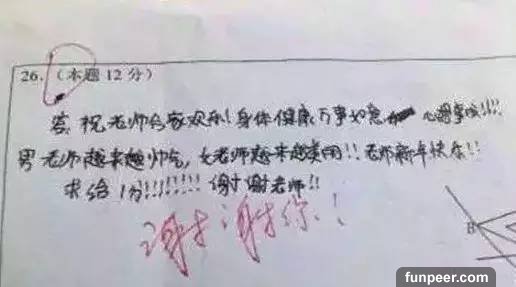 26. (本题12分)
答:祝老师合家欢乐!身体健康万事如意 心想事成!!!!
男老师越来越帅气,女老师越来越美丽!!老师新年快乐!!
求给1分!!!!!!!!谢谢老师!!
谢谢你!
B
funpeer.com